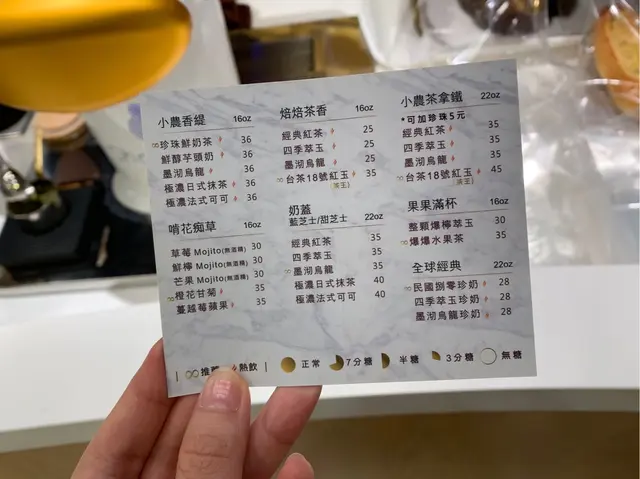 小農香緹 16oz
∞珍珠鮮奶茶 36
鮮醇芋頭奶 36
墨沏烏龍 36
極濃日式抹茶 36
極濃法式可可 36
啃花痴草 16oz
草莓Mojito(無酒精) 30
鮮檸Mojito(無酒精) 30
芒果Mojito(無酒精) 30
∞橙花甘菊 35
蔓越莓蘋果 35
焙焙茶香 16oz
經典紅茶 25
四季萃玉 25
墨沏烏龍 25
∞台茶18號紅玉 35
(茶王)
奶蓋
藍芝士/甜芝士 22oz
經典紅茶 35
四季萃玉 35
∞墨沏烏龍 35
極濃日式抹茶 40
極濃法式可可 40
小農茶拿鐵 22oz
*可加珍珠5元
經典紅茶 35
四季萃玉 35
墨沏烏龍 35
∞台茶18號紅玉 45
(茶王)
果果滿杯 16oz
整顆爆檸萃玉 30
∞爆爆水果茶 35
全球經典 22oz
∞民國捌零珍奶 28
四季萃玉珍奶 28
墨沏烏龍珍奶 28
| ∞推薦 熱飲 | 正常 7分糖 半糖 3分糖 無糖